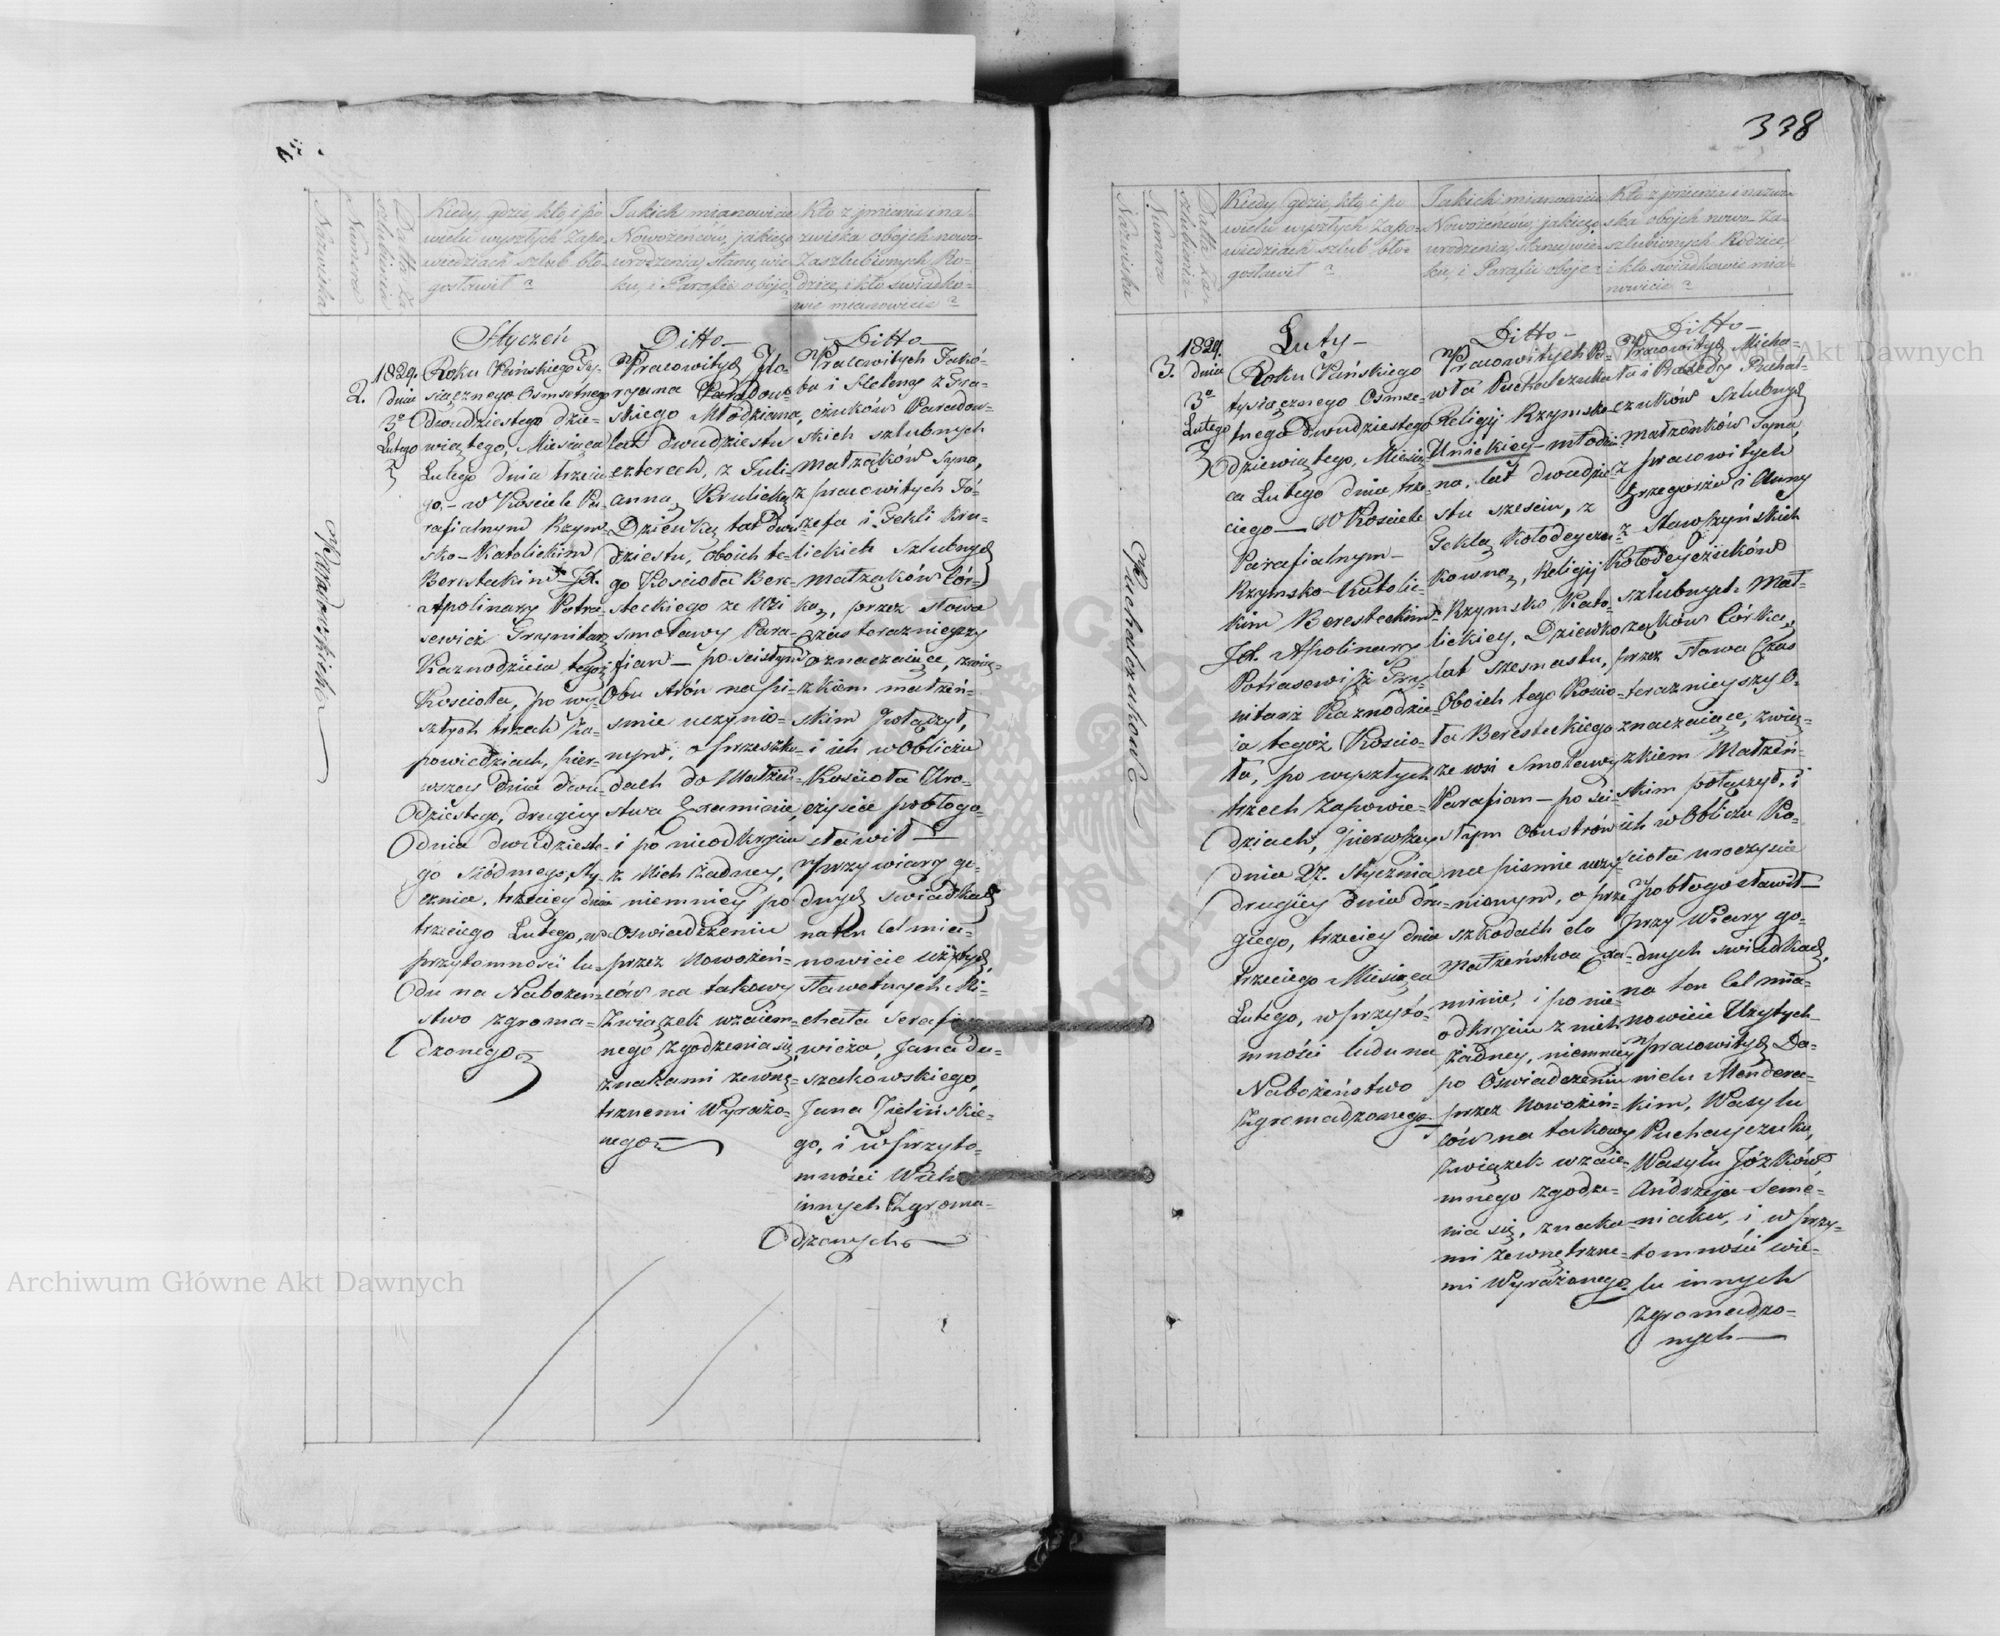 338
Nazwiska
Numera
Datta za
szlubienia
Kiedy, gdzie, kto i po
wielu wyszłych Zapo-
wiedziach szlub bło-
gosławił?
Jakich mianowicie
Nowożeńców, jakiego
urodzenia, stanu, wie-
ku, i Parafii oboje?
Kto z jmienia i na-
zwiska obojch nowo-
Zaszlubionych Ro-
dzice, i kto swiadko-
wie mianowicie?
Paradowskich
2.
1829.
dnia
3º
Lutego
Styczeń
Roku Pańskiego Ty-
siącznego Osmsetnego
Dwudziestego dzie-
wiątego, Miesiąca
Lutego dnia trzecie-
go, - w Kościele Pa-
rafialnym Rzym-
sko-Katolickim
Beresteckim Jx.
Apolinary Potra-
sewicz Trynitarz
Kaznodzieia tegoż
Kościoła, po wy-
szłych trzech Za-
powiedziach, pier-
wszey dnia dwu-
dziestego, drugiey
dnia dwudzieste-
go siódmego, Sty-
cznia, trzeciey dnia
trzeciego Lutego, w
przytomności lu-
du na Nabożeń-
stwo zgroma-
dzonego
Ditto
Pracowitych Flo-
ryana Paradow-
skiego Młodziana,
lat dwudziestu
czterech, z Juli-
anną Krulicką
Dziewką lat dwu-
dziestu, oboich te-
go Kościoła Bere-
steckiego ze Wsi
Smolawy Para-
fian - po scisłym
Obu stron na pi-
smie uczynio-
nym, o przeszko-
dach do Małżeń-
stwa Examinie,
i po nieodkryciu
z nich żadney,
niemniey po
Oswiadczeniu
przez Nowożeń-
ców na takowy
Związek wzaiem-
nego zgodzenia się,
znakami zewnę-
trznemi Wyrażo-
nego
Ditto
Pracowitych Jakó-
ba i Heleny z Gra-
czuków Paradow-
skich szlubnych
Małżąków Syna,
z pracowitych Jó-
zefa i Tekli Kru-
lickich szlubnych
małżąków Cór-
ką, przez słowa
Czas teraznieyszy
oznaczaiące, zwią-
zkiem małżeń-
skim połączył,
i ich w Obliczu
Kościoła Uro-
czyście pobłogo-
sławił
przy wiary go-
dnych swiadkach
na ten Cel mia-
nowicie użytych,
sławetnych Mi-
chała Serafi-
wicza, Jana Du-
szakowskiego,
Jana Zielińskie-
go, i w przyto-
mności Wielu
innych Zgroma-
dzonych
Nazwiska
Numera
Datta Za-
szlubienia
Kiedy, gdzie, kto i po
wielu wyszłych Zapo-
wiedziach szlub bło-
gosławił?
Jakich mianowicie
Nowożeńców, jakiego
urodzenia, stanu, wie-
ku, i Parafii oboje?
Kto z jmienia i nazwi-
ska obojch nowo-Za-
szlubionych Rodzice,
i kto swiadkowie mia-
nowicie?
Puchalczuków
3.
1829.
dnia
3º
Lutego
Luty
Roku Pańskiego
tysiącznego Osmse-
tnego Dwudziestego
dziewiątego, Miesią-
ca Lutego dnia trze-
ciego - W Kościele
Parafialnym
Rzymsko-Katolic-
kim Beresteckim
Jx. Apolinary
Potrasewicz Try-
nitarz Kaznodzie-
ia tegoż Kościo-
ła, po wyszłych
trzech Zapowie-
dziach, pierwszey
dnia 27. Stycznia
drugiey dnia dru-
giego, trzeciey dnia
trzeciego Miesiąca
Lutego, w przyto-
mności ludu na
Nabożeństwo
Zgromadzonego
Ditto
Pracowitych Pa-
wła Puchalczuka
Religii Rzymsko
Unickiey - młodzia-
na, lat dwudzie-
stu sześciu, z
Teklą Kołodeyczu-
kowną, Religii
Rzymsko Kato-
lickiey, Dziewką
lat szesnastu,
Oboich tego Kościo-
ła Beresteckiego
ze wsi Smolawy
Parafian - po sci-
słym Obustron
na pismie uczy-
nionym, o prze-
szkodach do
Małżeństwa Exa-
minie, i po nie-
odkryciu z nich
żadney, niemniey
po Oświadczeniu
przez Nowożeń-
ców na takowy
Związek wzaie-
mnego zgodze-
nia się, znaka-
mi zewnętrzne-
mi Wyrażonego.
Ditto
Pracowitych Micha-
ła i Puchal-
czuków Szlubnych
małżonków Syna,
z pracowitych
Grzegorza i Anny
z Stawszyńskich
Kołodeyczuków
szlubnych Mał-
żąków Córką,
przez słowa Czas
teraznieyszy O-
znaczaiące, zwią-
zkiem Małżeń-
skim połączył, i
ich w Obliczu Ko-
ścioła uroczyście
pobłogosławił
przy Wiary go-
dnych swiadkach,
na ten Cel mia-
nowicie Użytych
pracowitych Da-
niela Mendera-
kim, Wasyla
Puchayczuka,
Wasyla Józków,
Andrzeja Seme-
niaka, i w przy-
tomności wie-
lu innych
Zgromadzo-
nych
Archiwum Główne Akt Dawnych
Archiwum Główne Akt Dawnych